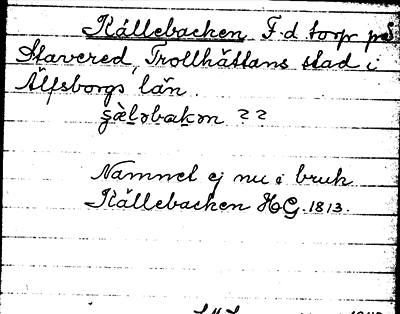 Källebacken F.d torp på
Stavered, Trollhättans stad i
Älfsborgs län.
Nammet ej nu i bruk
Källebacken HG. 1813.